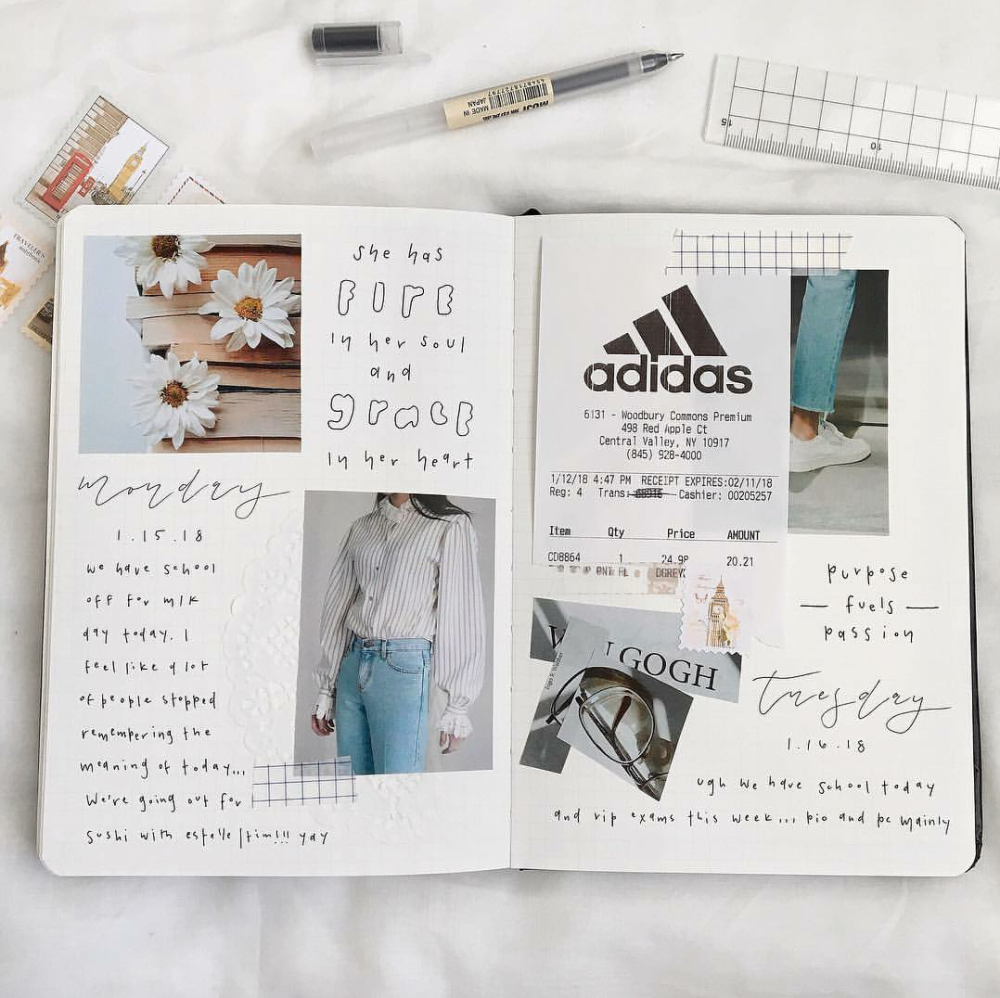 MUJI
MADE IN
JAPAN
15
10
TRAVELER'S
notebook
she has
FIRE
in her soul
and
grace
in her heart
monday
1.15.18
we have school
off for mlk
day today. I
feel like a lot
of people stopped
remembering the
meaning of today...
We're going out for
sushi with estelle/tim!!! yay
adidas
6131 - Woodbury Commons Premium
498 Red Apple Ct
Central Valley, NY 10917
(845) 928-4000
1/12/18 4:47 PM RECEIPT EXPIRES:02/11/18
Reg: 4 Trans: Cashier: 00205257
Item Qty Price AMOUNT
CD8864 1 24.99 20.21
DGREY
GOGH
purpose
— fuels —
passion
tuesday
1.16.18
ugh we have school today
and rip exams this week... bio and pc mainly